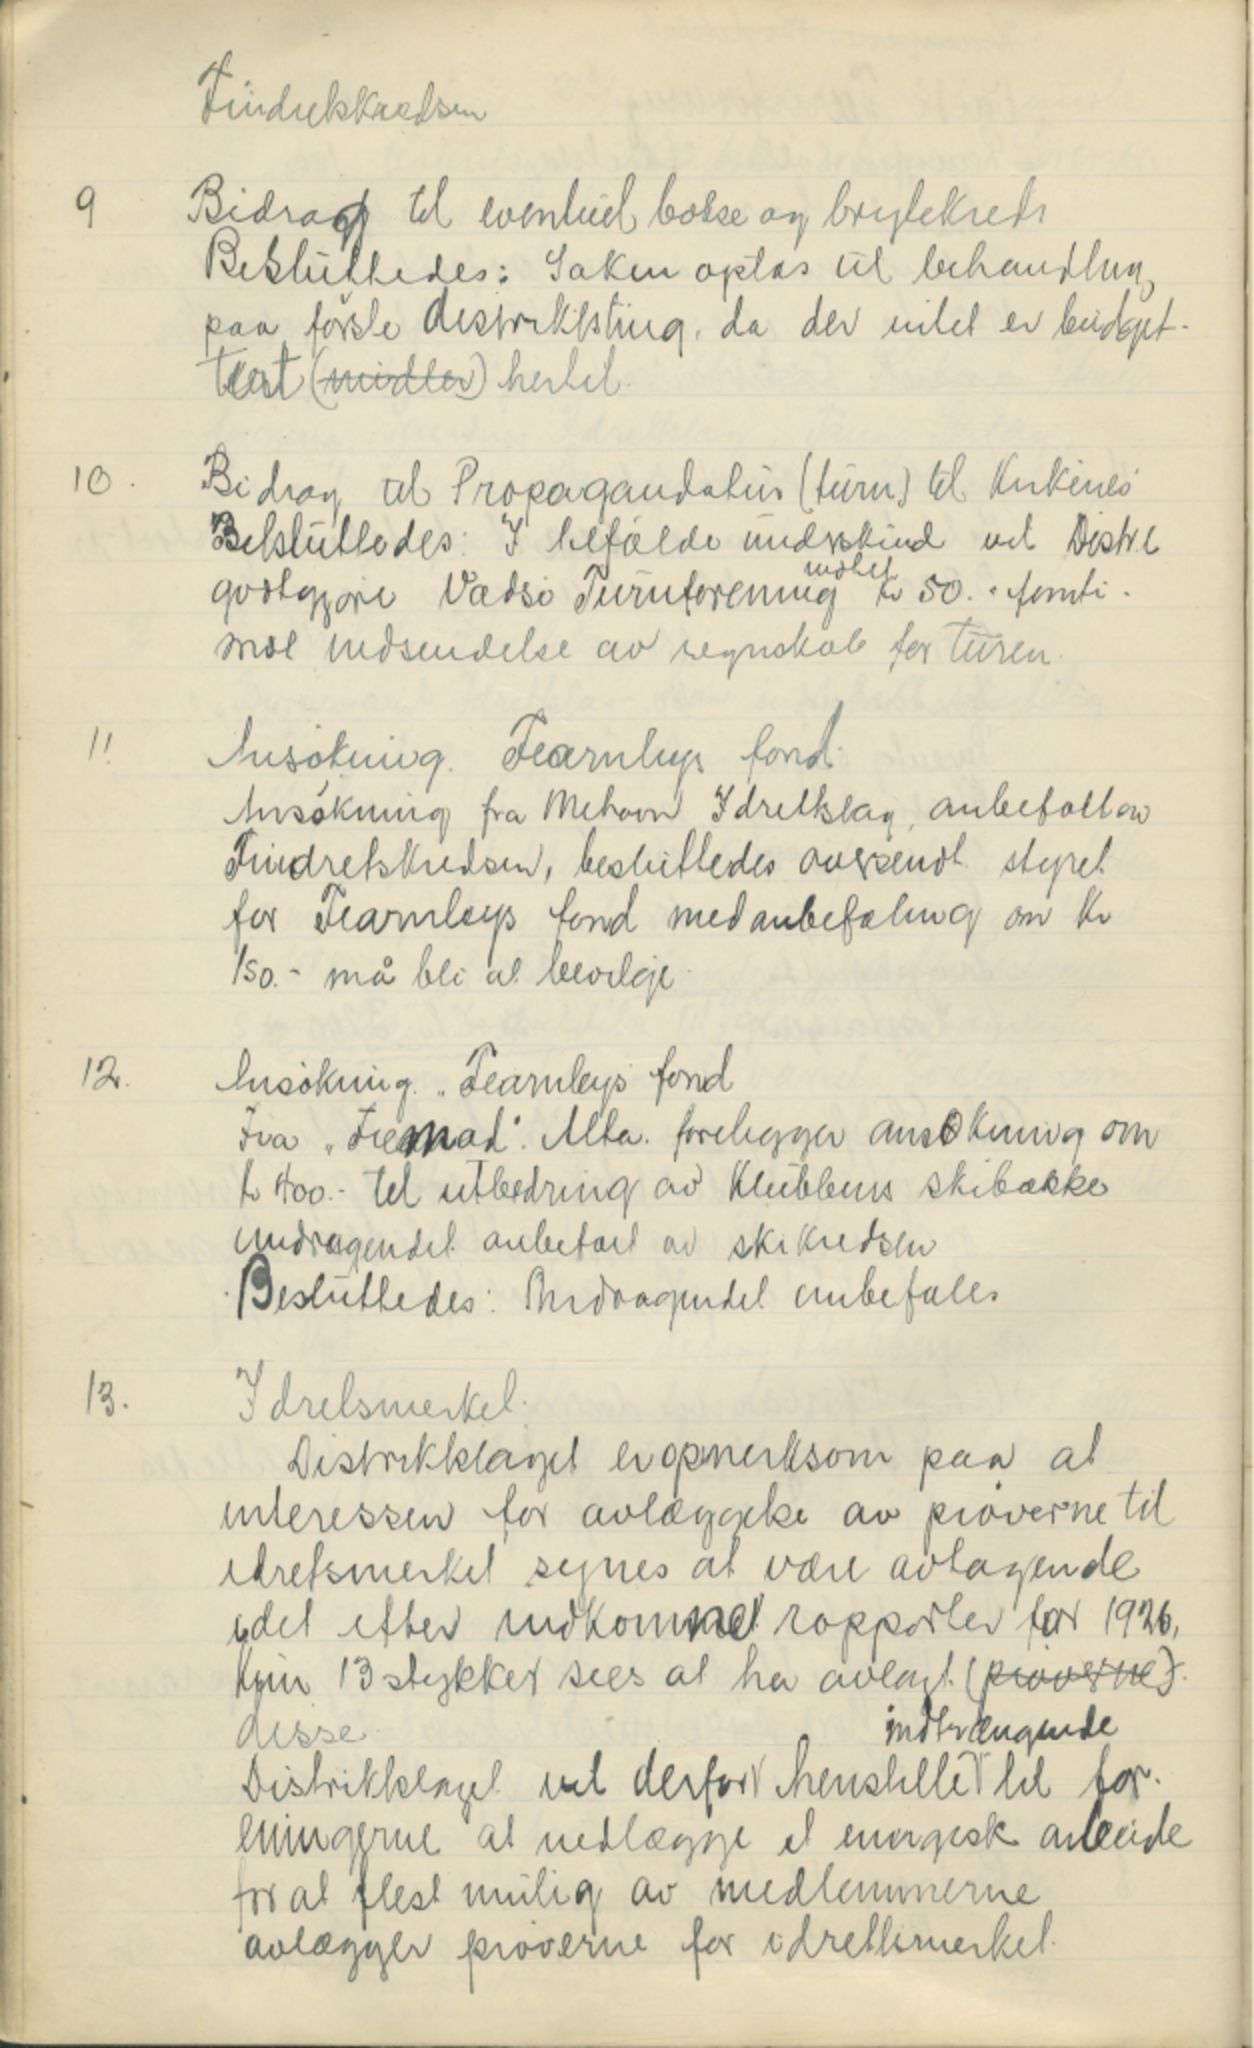 Friidretskredsen
9 Bidrag til eventuel bokse og brytekreds
Besluttedes: Saken optas til behandling
paa første distriktsting, da der intet er budget-
tert (midler) hertil.
10. Bidrag til Propagandatur (turn) til Kirkenes
Besluttedes: I tilfælde underskud vil Distrl
godtgjøre Vadsø Turnforening indtil kr 50.- femti -
mot indsendelse av regnskab for turen.
11 Ansøkning. Fearnleys fond.
Ansøkning fra Mehavn Idretslag, anbefalt av
Friidretskredsen, besluttedes oversendt styret
for Fearnleys fond med anbefaling om kr
150.- må bli at bevilge.
12. Ansøkning. Fearnleys fond
Fra "Fremad". Alta. foreligger ansøkning om
kr 400.- til utbedring av Klubbens skibakke
andragendet anbefalt av skikredsen
Besluttedes: Andragendet anbefales
13. Idretsmerket.
Distriktslaget er opmerksom paa at
interessen for avlæggelse av prøverne til
idretsmerket synes at være avtagende
idet efter indkomne rapporter for 1926,
kun 13 stykker sees at ha avlagt (prøverne).
disse
Distriktslaget vil derfor indtrængende henstille til for-
eningerne at nedlægge et energisk arbeide
for at flest mulig av medlemmerne
avlægger prøverne for idretsmerket.